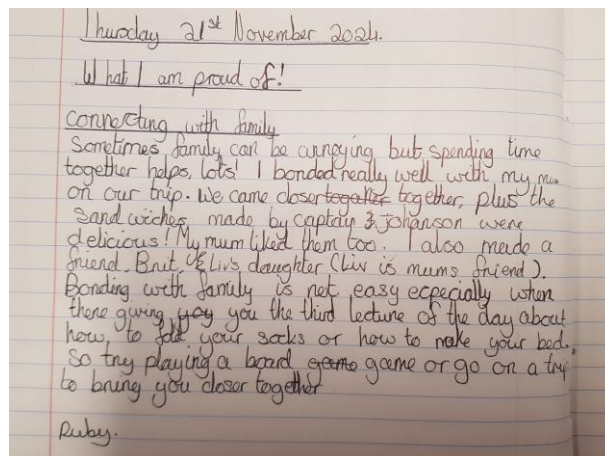 Thursday 21st November 2024.
What I am proud of!
Connecting with family
Sometimes family can be annoying but spending time
together helps, lots! I bonded really well with my mum
on our trip. We came closer together together, plus the
Sand wiches made by captain & Johanson were
delicious! My mum liked them too. I also made a
friend. Brit, Liv's daughter (Liv is mums friend).
Bonding with family is not easy ecpecially when
there giving yoy you the third lecture of the day about
how to fold your socks or how to make your bed.
So try playing a board game game or go on a trip
to bring you closer together
Ruby.